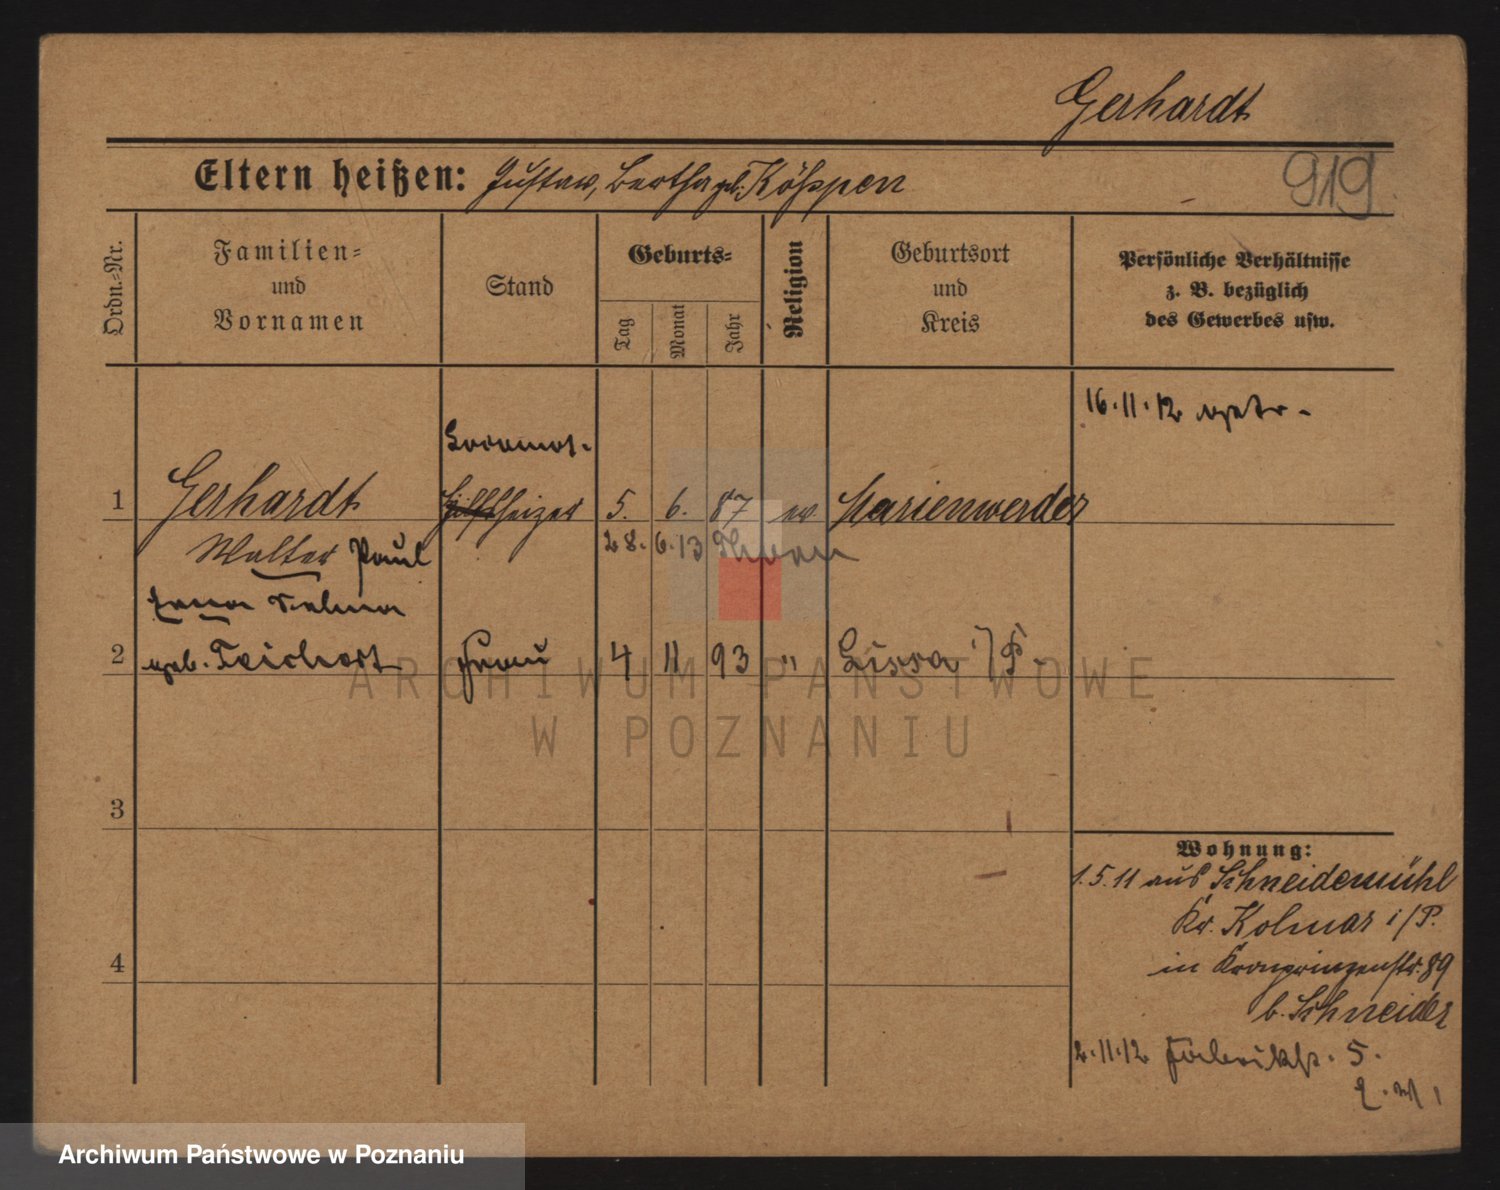 Gerhardt
919
Eltern heißen: Gustav, Bertha geb. Köppen
Ordn.-Nr.
Familien-
und
Vornamen
Stand
Geburts-
Tag
Monat
Jahr
Religion
Geburtsort
und
Kreis
Persönliche Verhältnisse
z. B. bezüglich
des Gewerbes usw.
16.11.12
Locomot.-
1 Gerhardt Hilfsheizer 5. 6. 87 ev. Marienwerder
Walter Paul 28. 6. 13 Thorn
Erna Selma
2 geb. Teichert Frau 4 11 93 " Lissa i/P.
3
4
Wohnung:
1.5.11 aus Schneidemühl
Kr. Kolmar i/P.
in Kronprinzenstr. 89
b. Schneider
2.11.12 Fabrikstr. 5.
ARCHIWUM PAŃSTWOWE
W POZNANIU
Archiwum Państwowe w Poznaniu